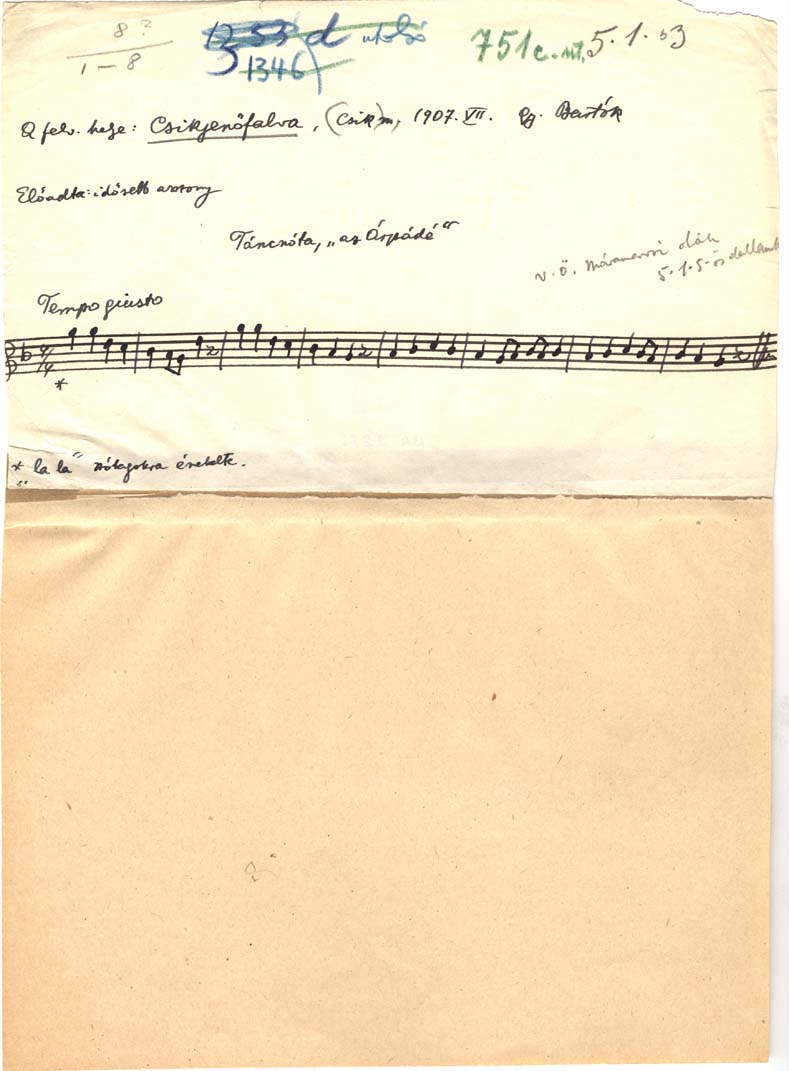 8?
1 – 8
1346
d utolsó
751c. sz.
5.1.53
A felv. helye: Csikjenőfalva, (Csik m), 1907. VII. Gy. Bartók
Előadta: idősebb asszony
Táncnóta, „az Árpádé“
v. ö. Máramarosi oláh
5.1.5-ös dallamok
Tempo giusto
*
* „la la“ szótagokra énekelte.